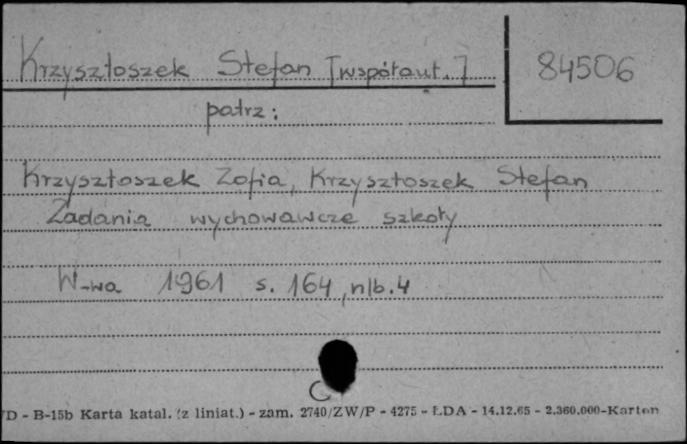 Krzysztoszek Stefan [współaut.]
84506
patrz:
Krzysztoszek Zofia, Krzysztoszek Stefan
Zadania wychowawcze szkoły
W-wa 1961 s. 164, nlb. 4
C
/D - B-15b Karta katal. (z liniat.) - zam. 2740/ZW/P - 4275 - ŁDA - 14.12.65 - 2.360.000-Karton